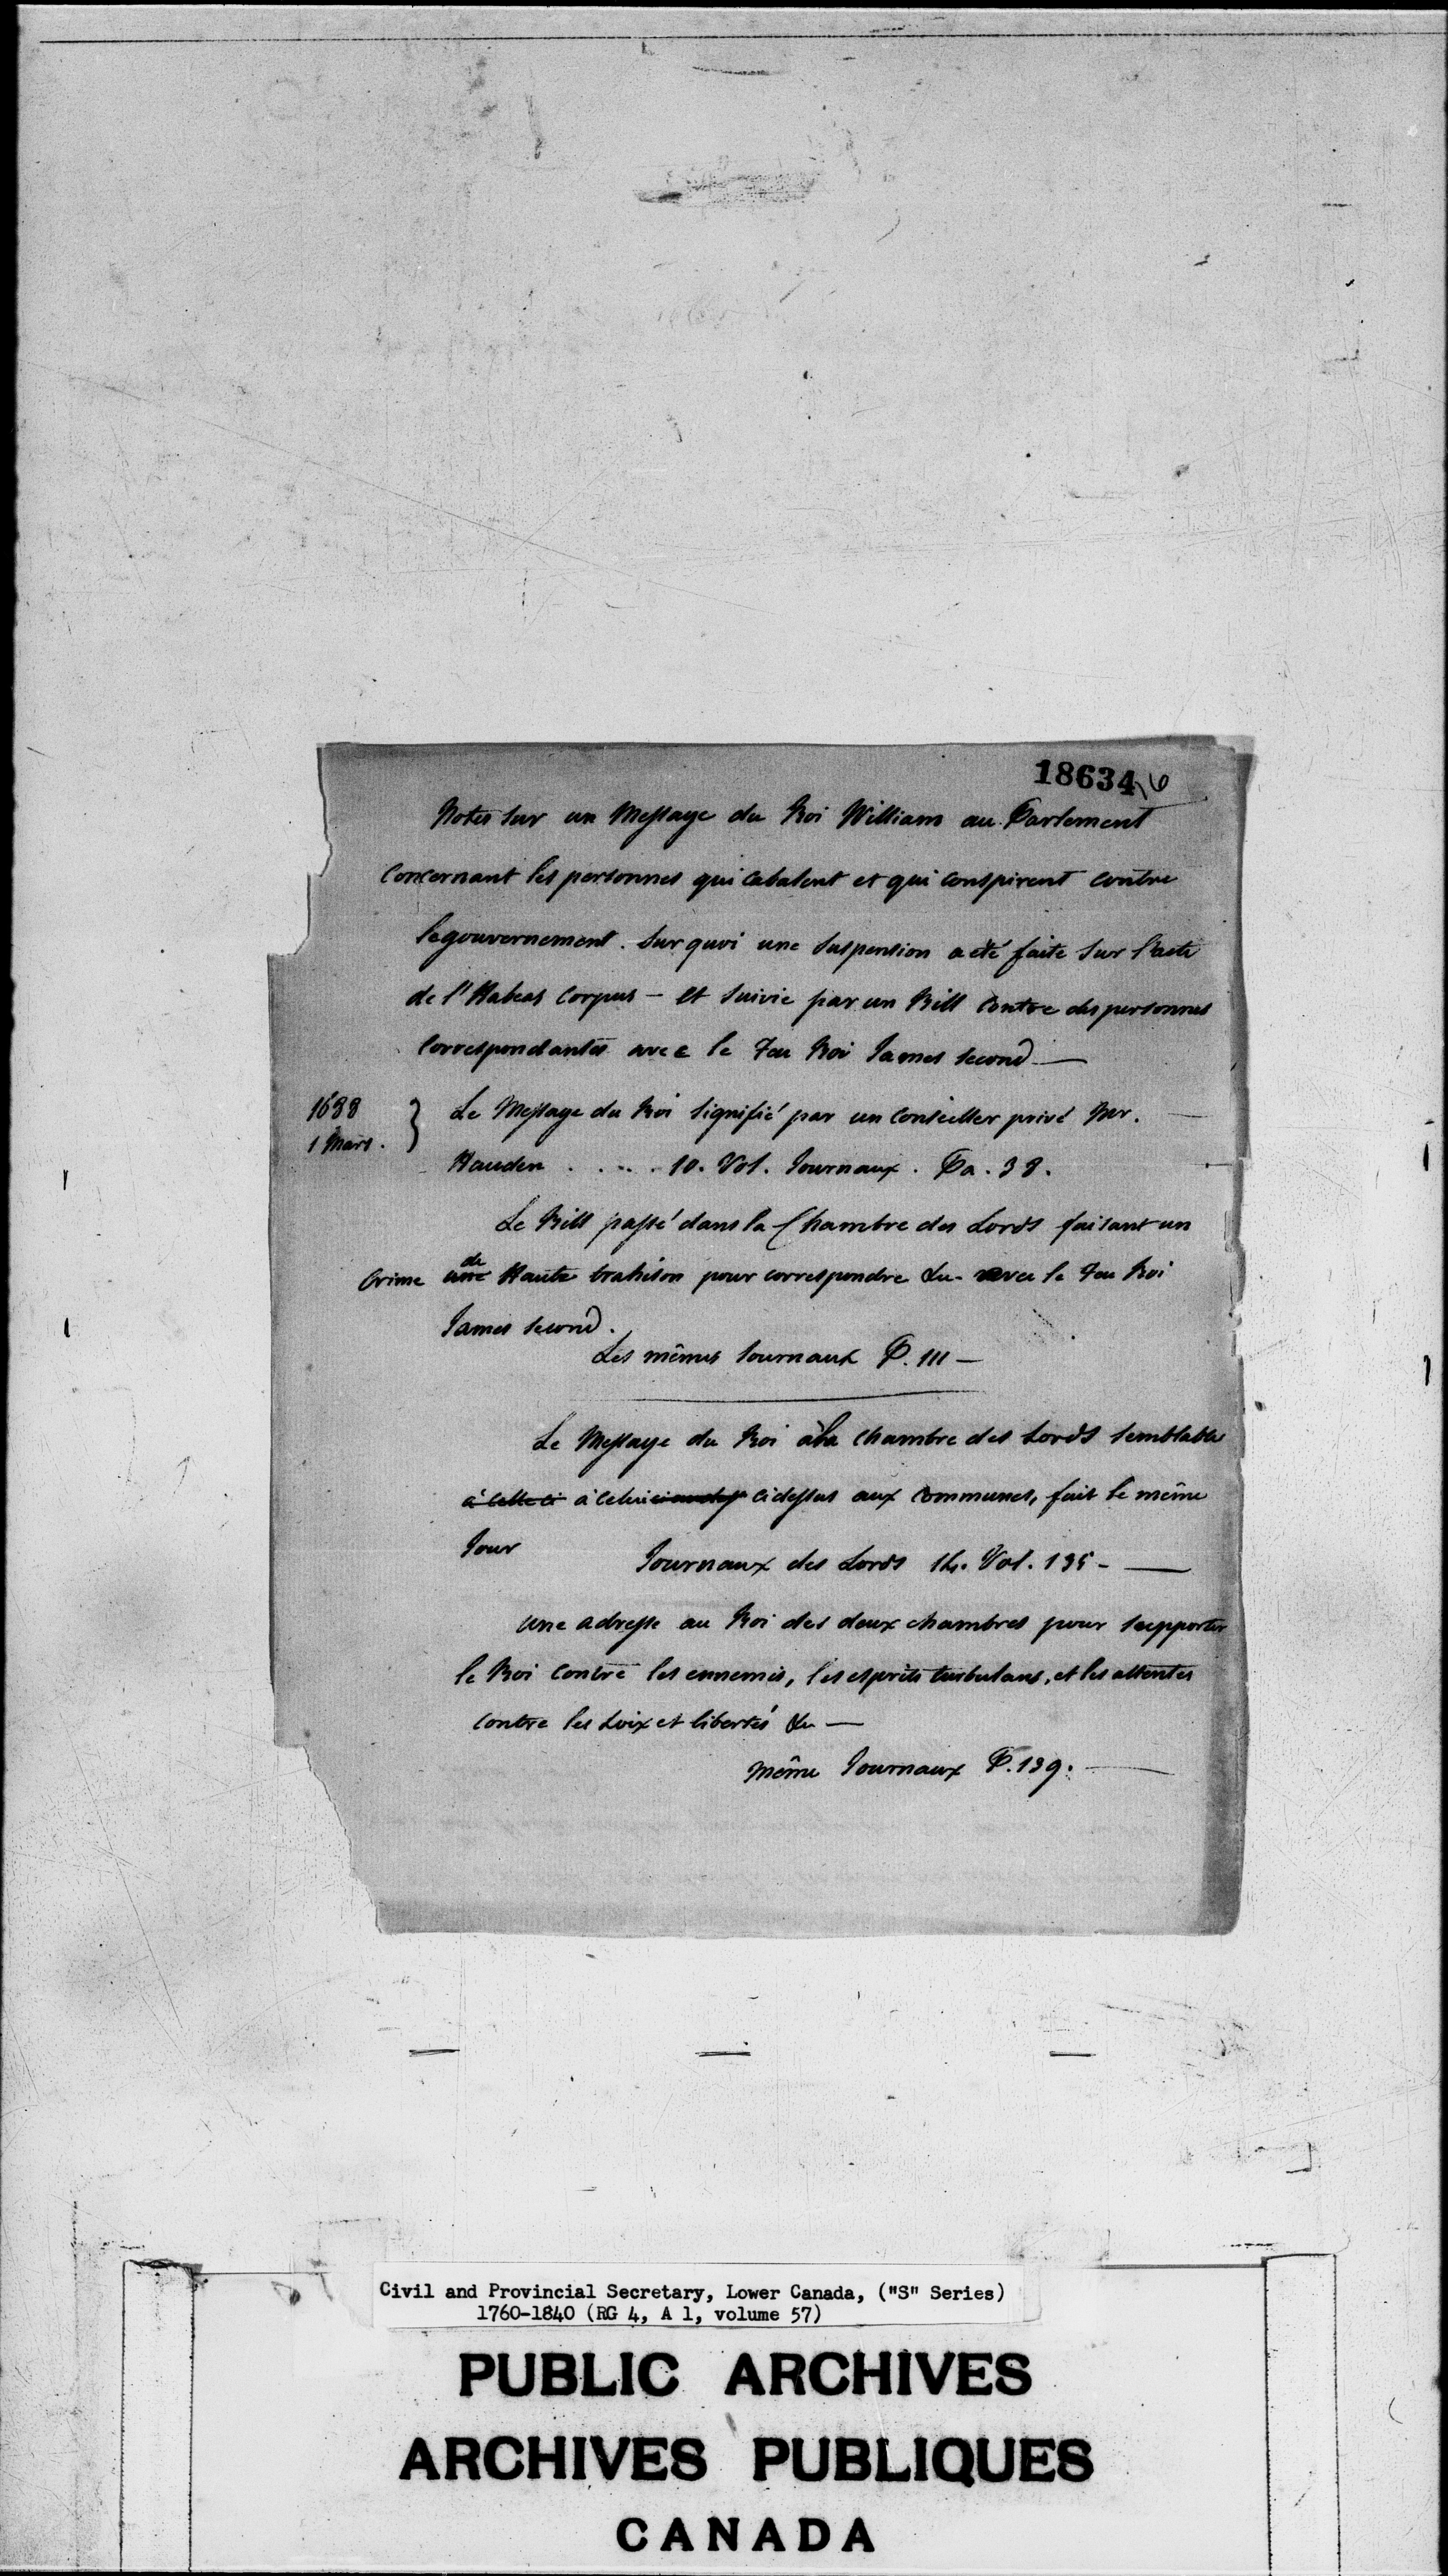 18634
6
Notes sur un Message du Roi William au Parlement
concernant les personnes qui cabalent et qui conspirent contre
le gouvernement. Sur quoi une suspension a été faite sur l'acte
de l'Habeas Corpus — et suivie par un Bill contre des personnes
correspondantes avec le Feu Roi James second —
1688
1 Mars. }
Le Message du Roi signifié par un conseiller privé Mr.
Hauden . . . . 10. Vol. Journaux. Pa. 38.
Le Bill passé dans la Chambre des Lords faisant un
de
crime une Haute trahison pour correspondre &c. avec le Feu Roi
James second.
Les mêmes Journaux P. 111 —
Le Message du Roi à la Chambre des Lords semblable
à celle ci à celui cidessus aux communes, fait le même
Jour
Journaux des Lords 14. Vol. 135 - —
une adresse au Roi des deux chambres pour supporter
le Roi contre les ennemis, les esprits turbulans, et les attentes
contre les Loix et libertés &c —
même Journaux P. 139. —
Civil and Provincial Secretary, Lower Canada, ("S" Series)
1760-1840 (RG 4, A 1, volume 57)
PUBLIC ARCHIVES
ARCHIVES PUBLIQUES
CANADA